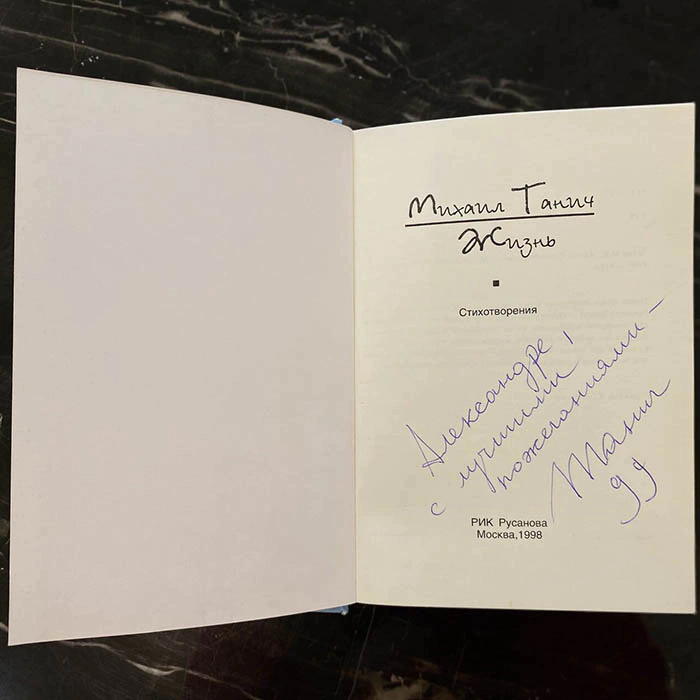 Михаил Танич
Жизнь
Стихотворения
Александре,
с лучшими
пожеланиями –
Танич
99
РИК Русанова
Москва,1998